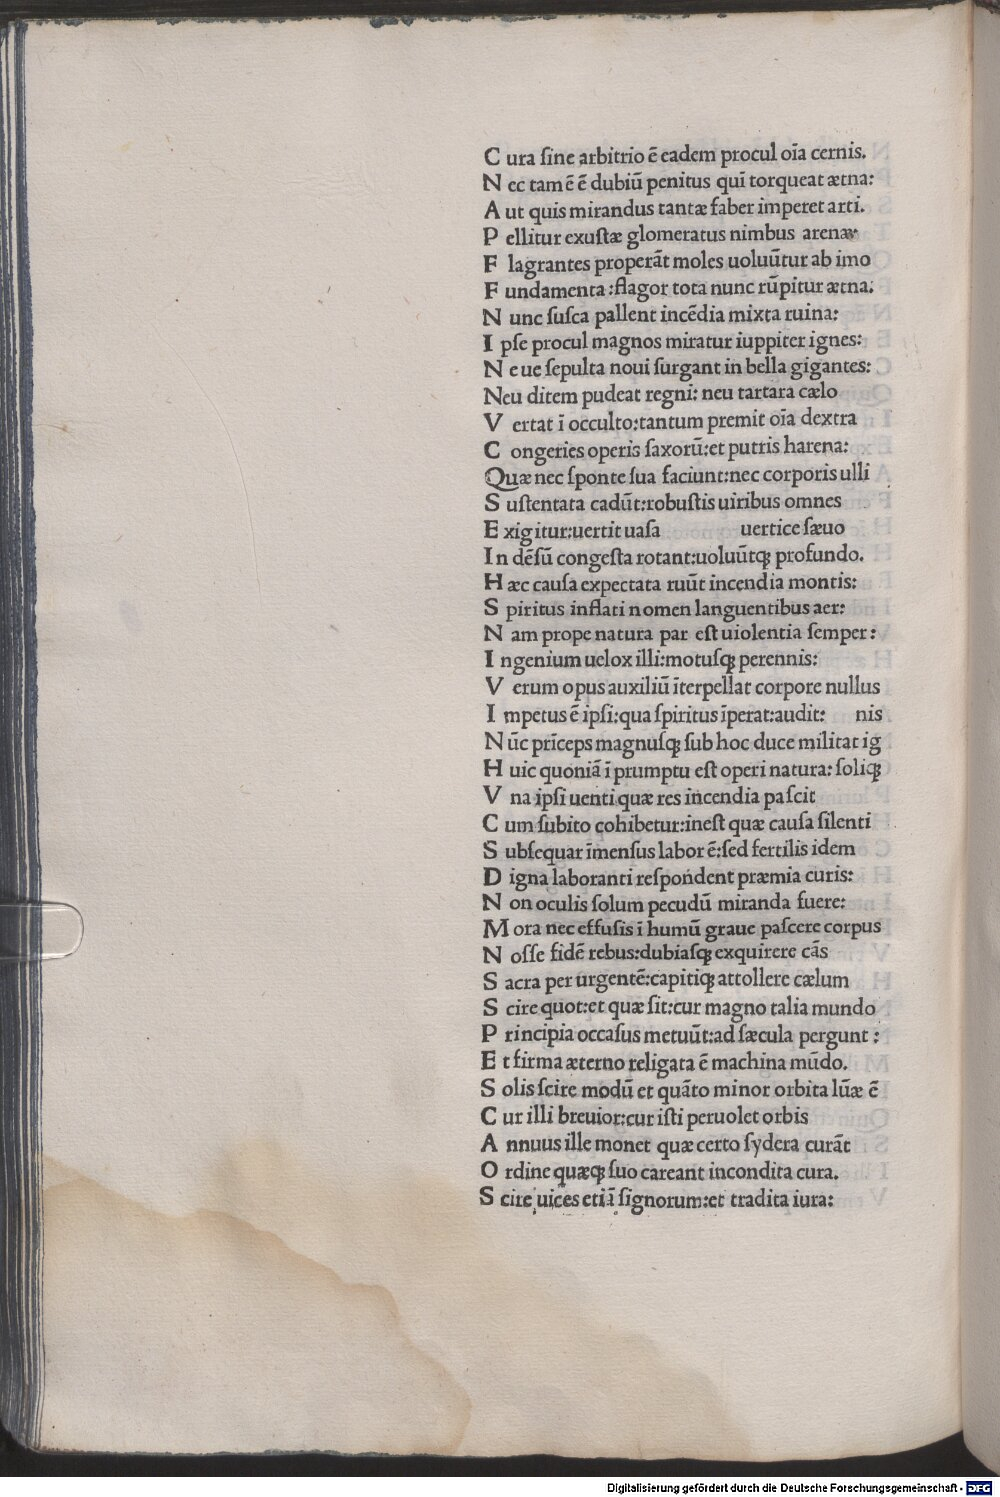 C ura ſine arbitrio ē eadem procul oīa cernis.
N ec tamē ē dubiū penitus quī torqueat ætna:
A ut quis mirandus tantæ faber imperet arti.
P ellitur exuſtæ glomeratus nimbus arenæ
F lagrantes properāt moles uoluūtur ab imo
F undamenta :flagor tota nunc rūpitur ætna:
N unc fuſca pallent incēdia mixta ruina:
I pſe procul magnos miratur iuppiter ignes:
N e ue ſepulta noui ſurgant in bella gigantes:
Neu ditem pudeat regni: neu tartara cælo
V ertat ī occulto:tantum premit oīa dextra
C ongeries operis ſaxorū:et putris harena:
Quæ nec ſponte ſua faciunt:nec corporis ulli
S uſtentata cadūt:robuſtis uiribus omnes
E xigitur:uertit uaſa uertice ſæuo
I n dēſū congeſta rotant:uoluūtqꝫ profundo.
H æc cauſa expectata ruūt incendia montis:
S piritus inflati nomen languentibus aer:
N am prope natura par eſt uiolentia ſemper:
I ngenium uelox illi:motuſqꝫ perennis:
V erum opus auxiliū īterpellat corpore nullus
I mpetus ē ipſi:qua ſpiritus īperat:audit: nis
N ūc prīceps magnuſqꝫ ſub hoc duce militat ig
H uic quoniā ī prumptu eſt operi natura: ſoliqꝫ
V na ipſi uenti quæ res incendia paſcit
C um ſubito cohibetur:ineſt quæ cauſa ſilenti
S ubſequar īmenſus labor ē:ſed fertilis idem
D igna laboranti reſpondent præmia curis:
N on oculis ſolum pecudū miranda fuere:
M ora nec effuſis ī humū graue paſcere corpus
N oſſe fidē rebus:dubiaſqꝫ exquirere cās
S acra per urgentē:capitiqꝫ attollere cælum
S cire quot:et quæ ſit:cur magno talia mundo
P rincipia occaſus metuūt:ad ſæcula pergunt :
E t firma æterno religata ē machina mūdo.
S olis ſcire modū et quāto minor orbita lūæ ē
C ur illi breuior:cur iſti peruolet orbis
A nnuus ille monet quæ certo ſydera curāt
O rdine quæqꝫ ſuo careant incondita cura.
S cire uices etiā ſignorum:et tradita iura:
Digitalisierung gefördert durch die Deutsche Forschungsgemeinschaft - DFG